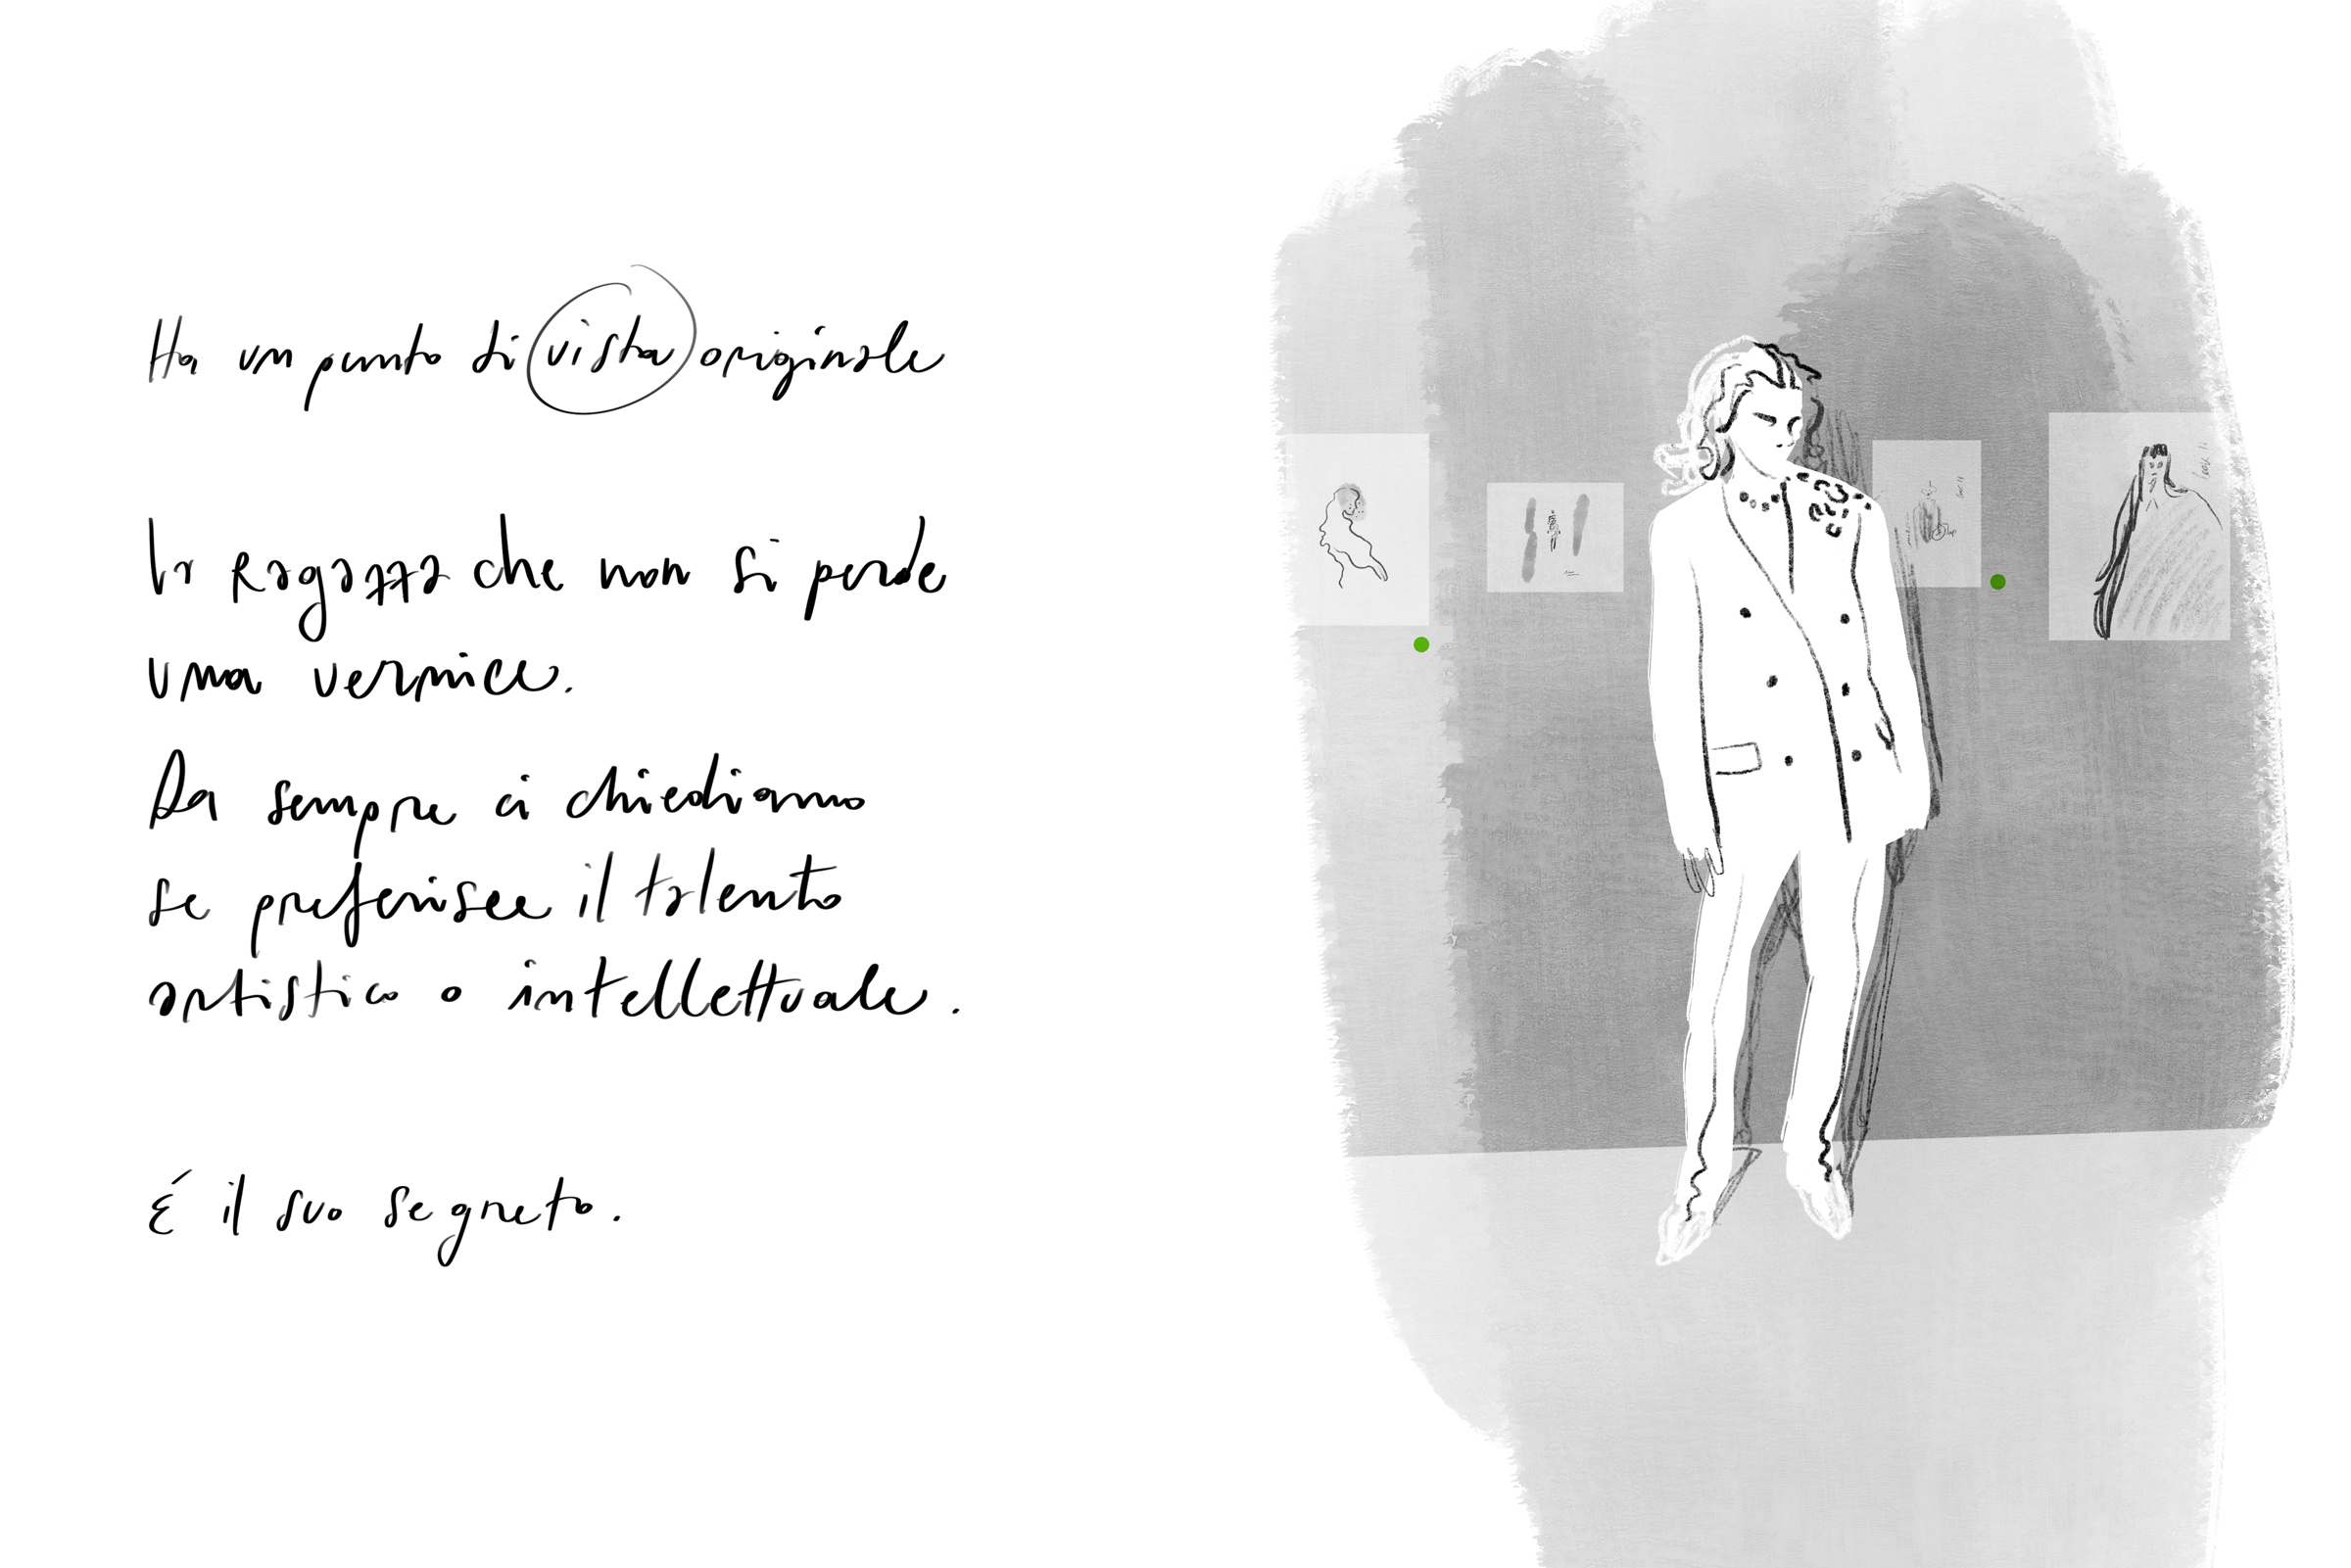 Ha un punto di vista originale
la Ragazza che non si perde
una vernice.
Da sempre ci chiediamo
se preferisce il talento
artistico o intellettuale.
É il suo segreto.
look 11